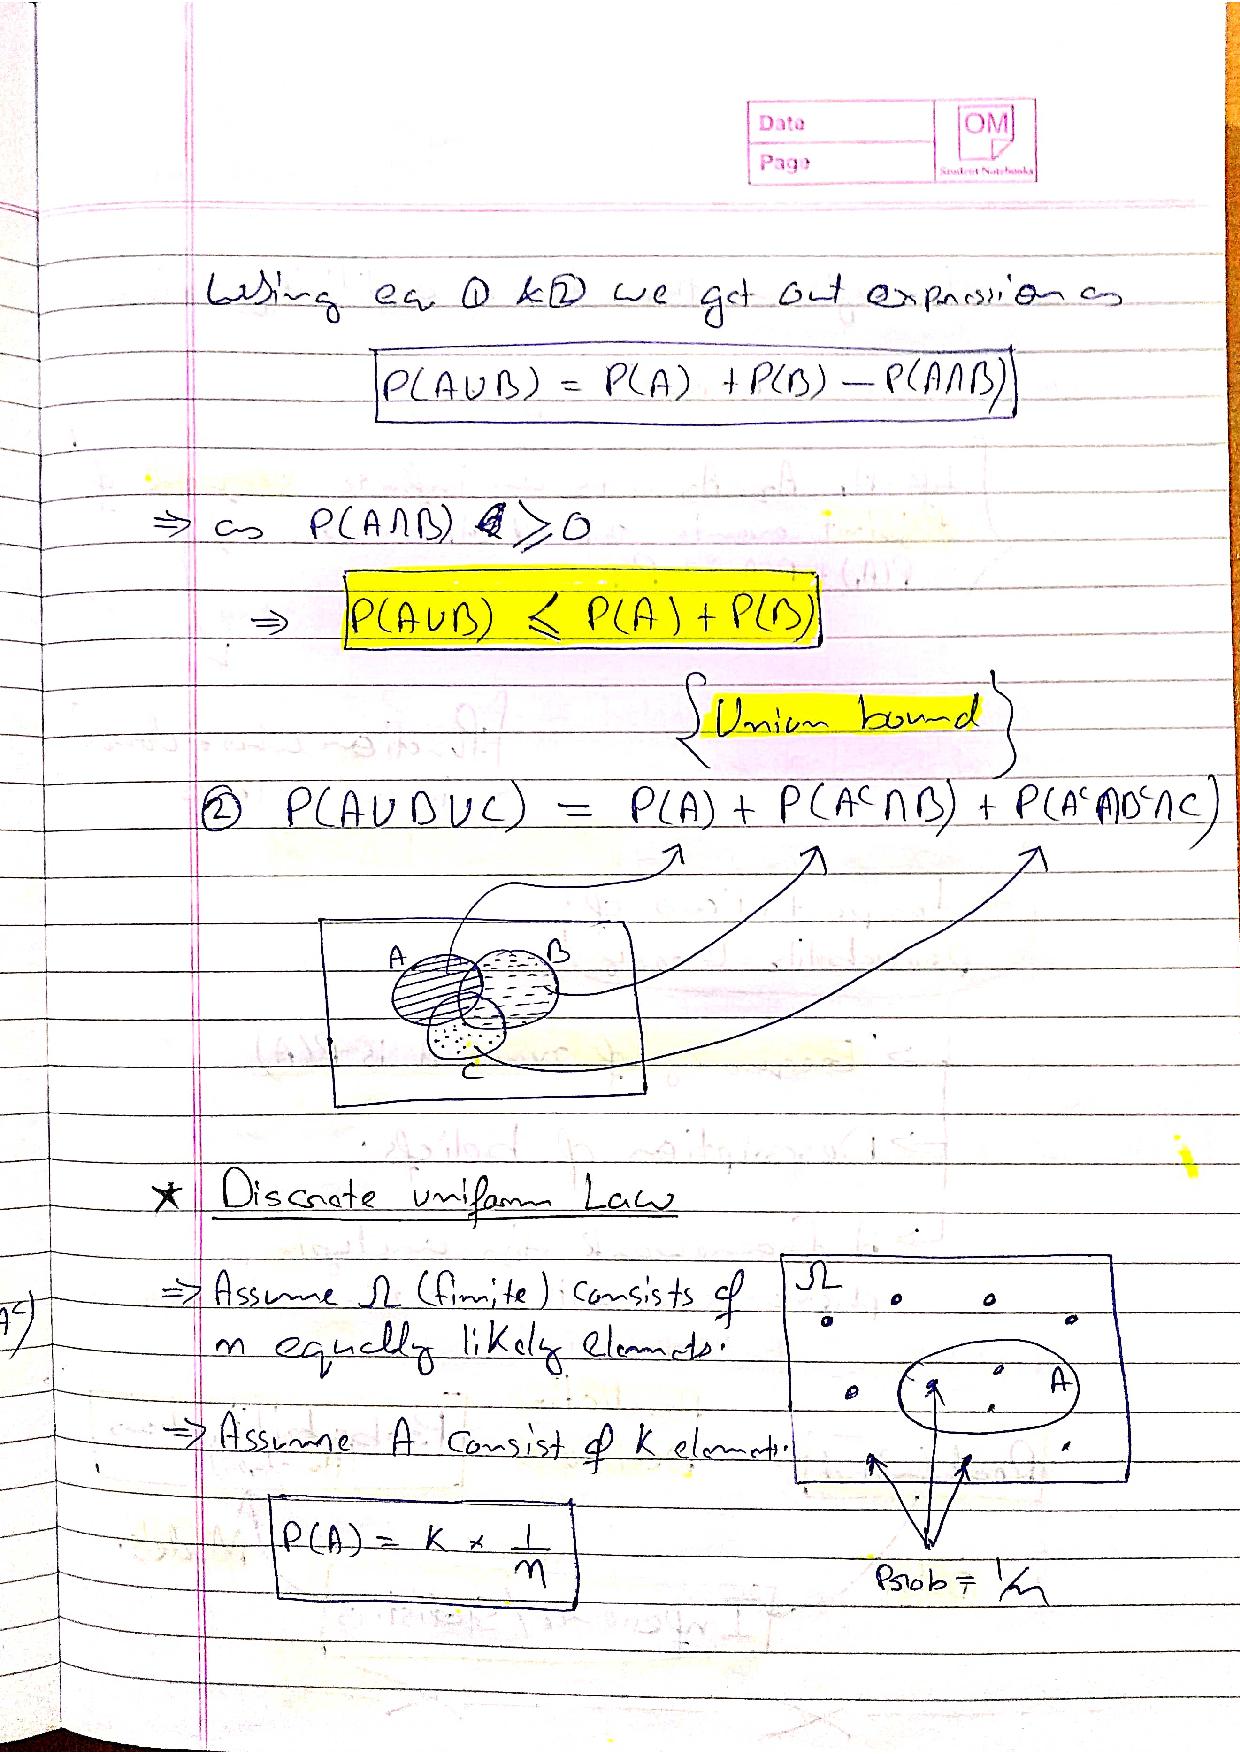 Date
Page
OM
Student Notebooks
Using eq ① & ② we get out expression as
P(A∪B) = P(A) + P(B) − P(A∩B)
⇒ as P(A∩B) ≥ 0
⇒ P(A∪B) ≤ P(A) + P(B)
{Union bound}
② P(A∪B∪C) = P(A) + P(Aᶜ∩B) + P(Aᶜ∩Bᶜ∩C)
A B
C
★ Discrete uniform Law
⇒ Assume Ω (finite) consists of
n equally likely elements.
Ω
A
⇒ Assume A consist of K elements.
P(A) = K × 1/n
Prob = 1/n